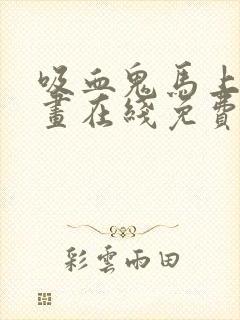 吸血鬼馬上
畫在綫免費
彩雲雨田